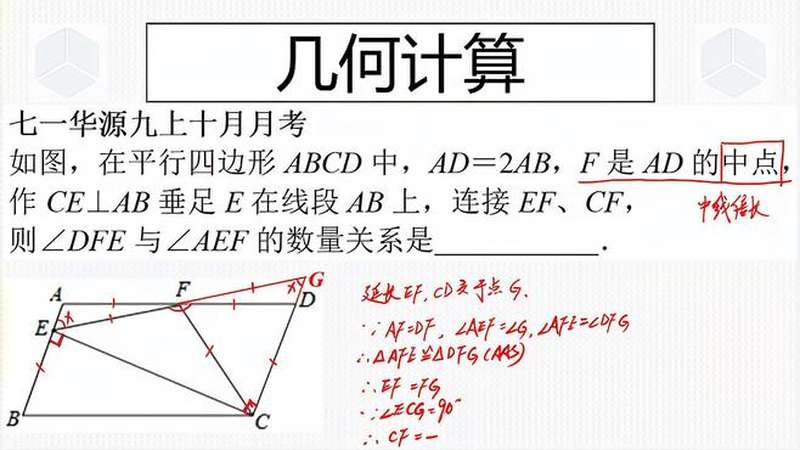 几何计算
七一华源九上十月月考
如图，在平行四边形 ABCD 中，AD=2AB，F 是 AD 的中点，
作 CE⊥AB 垂足 E 在线段 AB 上，连接 EF、CF，
中线倍长
则∠DFE 与∠AEF 的数量关系是____________．
A F G D
E x x
B C
延长EF, CD交于点G.
∵ AF=DF, ∠AEF=∠G, ∠AFE=∠DFG
∴ △AFE≌△DFG (AAS)
∴ EF=FG
∵ ∠ECG=90°
∴ CF=